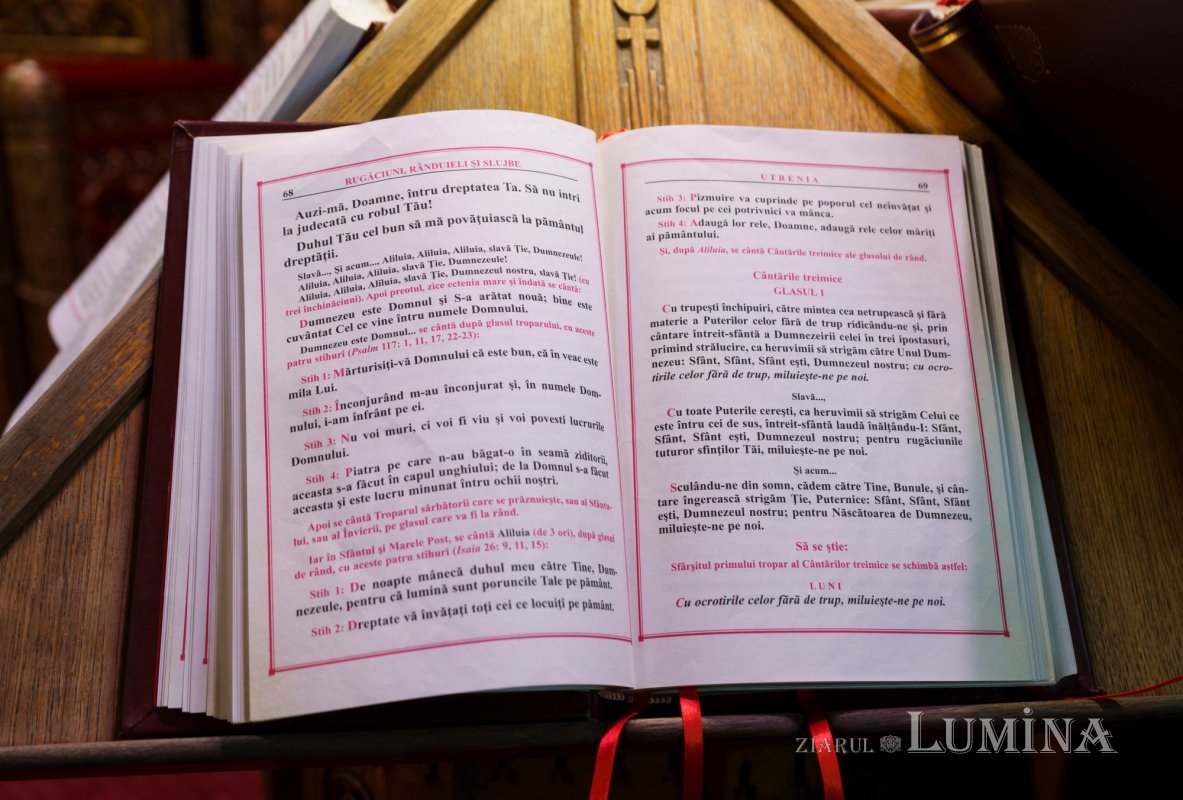 68
RUGĂCIUNI, RÂNDUIELI ŞI SLUJBE
Auzi-mă, Doamne, întru dreptatea Ta. Să nu intri
la judecată cu robul Tău!
Duhul Tău cel bun să mă povăţuiască la pământul
dreptăţii.
Slavă..., Şi acum..., Aliluia, Aliluia, slavă Ţie, Dumnezeule!
Aliluia, Aliluia, Aliluia, slavă Ţie, Dumnezeule!
Aliluia, Aliluia, Aliluia, slavă Ţie, Dumnezeul nostru, slavă Ţie! (cu
trei închinăciuni). Apoi preotul, zice ectenia mare şi îndată se cântă:
Dumnezeu este Domnul şi S-a arătat nouă; bine este
cuvântat Cel ce vine întru numele Domnului.
Dumnezeu este Domnul... se cântă după glasul troparului, cu aceste
patru stihuri (Psalm 117: 1, 11, 17, 22-23):
Stih 1: Mărturisiţi-vă Domnului că este bun, că în veac este
mila Lui.
Stih 2: Înconjurând m-au înconjurat şi, în numele Dom-
nului, i-am înfrânt pe ei.
Stih 3: Nu voi muri, ci voi fi viu şi voi povesti lucrurile
Domnului.
Stih 4: Piatra pe care n-au băgat-o în seamă ziditorii,
aceasta s-a făcut în capul unghiului; de la Domnul s-a făcut
aceasta şi este lucru minunat întru ochii noştri.
Apoi se cântă Troparul sărbătorii care se prăznuieşte, sau al Sfântu-
lui, sau al Învierii, pe glasul care va fi la rând.
Iar în Sfântul şi Marele Post, se cântă Aliluia (de 3 ori), după glasul
de rând, cu aceste patru stihuri (Isaia 26: 9, 11, 15):
Stih 1: De noapte mânecă duhul meu către Tine, Dum-
nezeule, pentru că lumină sunt poruncile Tale pe pământ.
Stih 2: Dreptate vă învăţaţi toţi cei ce locuiţi pe pământ.
UTRENIA
69
Stih 3: Pizmuire va cuprinde pe poporul cel neînvăţat şi
acum focul pe cei potrivnici va mânca.
Stih 4: Adaugă lor rele, Doamne, adaugă rele celor măriţi
ai pământului.
Şi, după Aliluia, se cântă Cântările treimice ale glasului de rând.
Cântările treimice
GLASUL 1
Cu trupeşti închipuiri, către mintea cea netrupească şi fără
materie a Puterilor celor fără de trup ridicându-ne şi, prin
cântare întreit-sfântă a Dumnezeirii celei în trei ipostasuri,
primind strălucire, ca heruvimii să strigăm către Unul Dum-
nezeu: Sfânt, Sfânt, Sfânt eşti, Dumnezeul nostru; cu ocro-
tirile celor fără de trup, miluieşte-ne pe noi.
Slavă...,
Cu toate Puterile cereşti, ca heruvimii să strigăm Celui ce
este întru cei de sus, întreit-sfântă laudă înălţându-I: Sfânt,
Sfânt, Sfânt eşti, Dumnezeul nostru; pentru rugăciunile
tuturor sfinţilor Tăi, miluieşte-ne pe noi.
Şi acum...
Sculându-ne din somn, cădem către Tine, Bunule, şi cân-
tare îngerească strigăm Ţie, Puternice: Sfânt, Sfânt, Sfânt
eşti, Dumnezeul nostru; pentru Născătoarea de Dumnezeu,
miluieşte-ne pe noi.
Să se ştie:
Sfârşitul primului tropar al Cântărilor treimice se schimbă astfel:
LUNI
Cu ocrotirile celor fără de trup, miluieşte-ne pe noi.
ZIARUL LUMINA